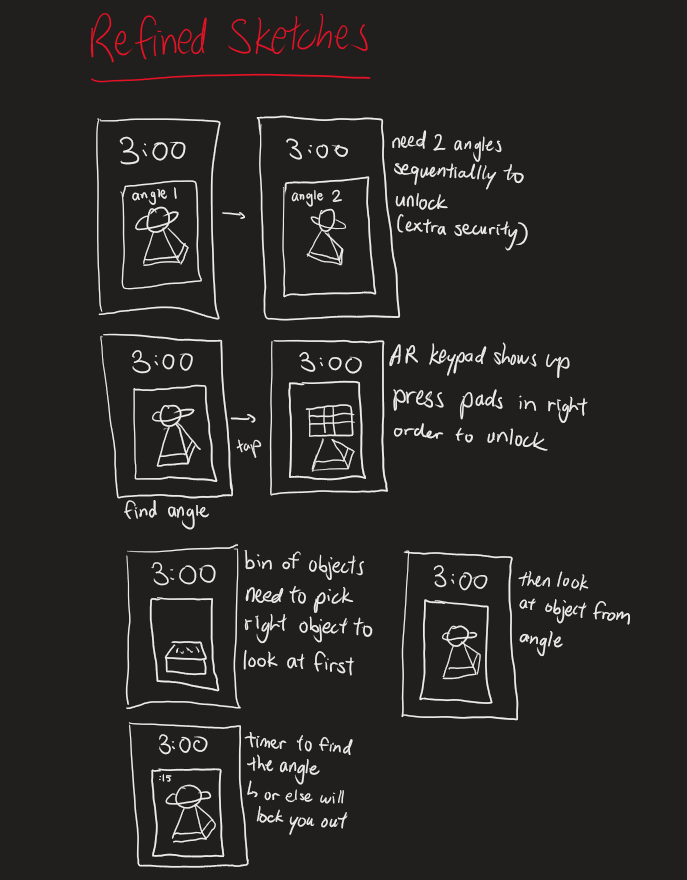 Refined Sketches
3:00
angle 1
3:00
angle 2
need 2 angles
sequentiallly to
unlock
(extra security)
3:00
tap
find angle
3:00
AR keypad shows up
press pads in right
order to unlock
3:00
bin of objects
need to pick
right object to
look at first
3:00
then look
at object from
angle
3:00
:15
timer to find
the angle
↳ or else will
lock you out